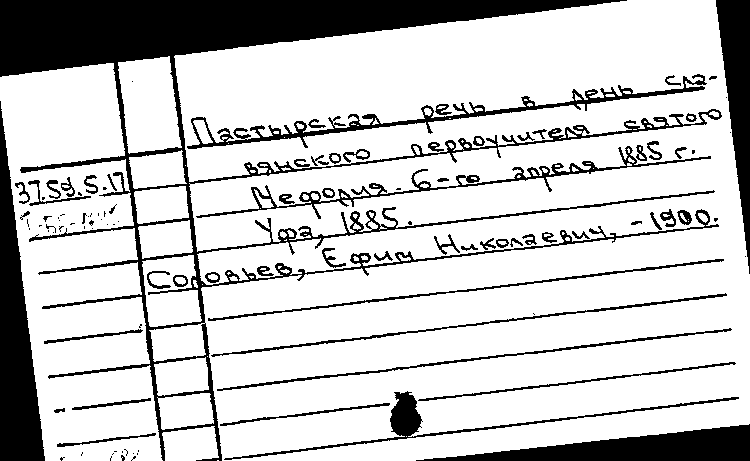 Пастырская речь в день сла-
вянского первоучителя святого
37.59.5.17
Мефодия. 6-го апреля 1885 г.
Уфа, 1885.
Соловьев, Ефим Николаевич, -1900.